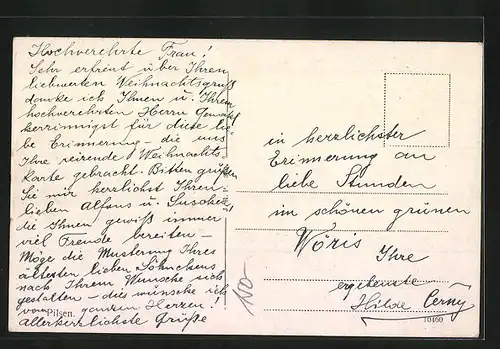 Hochverehrte Frau!
Sehr erfreut über Ihren
liebwerten Weihnachtsgruß
danke ich Ihnen u. Ihrem
hochverehrten Herrn Gemahl
herzinnigst für diese lie=
be Erinnerung – die uns
Ihre reizende Weihnachts
Karte gebracht. Bitten grüßen
Sie mir herzlichst Ihren
lieben Alfons u.
die Ihnen gewiß immer
viel Freude bereiten –
Möge die Musterung Ihres
ältesten lieben Söhnchens
nach Ihrem Wunsche sich
gestalten – dies wünsche ich
vom ganzen Herzen!
Pilsen.
allerherzlichste Grüße
in herzlichster
Erinnerung an
liebe Stunden
im schönen grünen
Wöris
Ihre
ergebenste
Hilde Černý
150-
10460